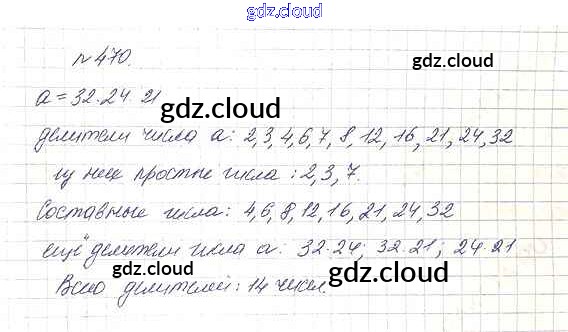 gdz.cloud
n 470.
gdz.cloud
a = 32·24·21
gdz.cloud
делители числа a: 2,3,4,6,7,8,12,16,21,24,32
из них простые числа: 2,3,7.
gdz.cloud
Составные числа: 4,6,8,12,16,21,24,32
ещё делители числа a: 32·24; 32·21; 24·21
gdz.cloud
gdz.cloud
Всего делителей: 14 чисел.